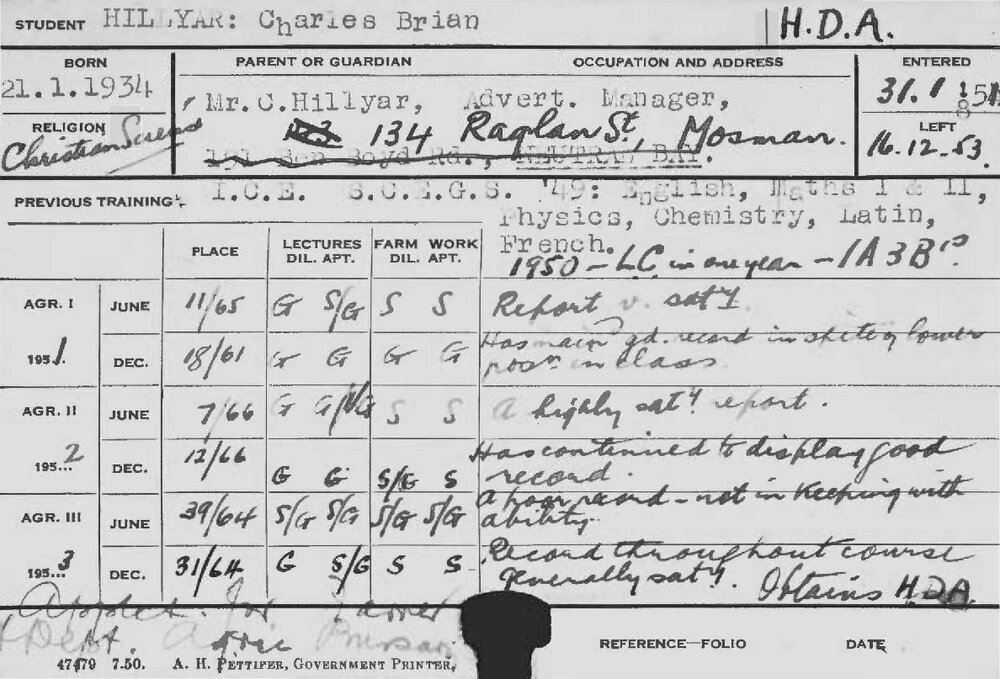 STUDENT HILLYAR: Charles Brian H.D.A.
BORN PARENT OR GUARDIAN OCCUPATION AND ADDRESS ENTERED
21.1.1934 Mr. C. Hillyar, Advert. Manager, 31.1.51
RELIGION 123 134 Raglan St, Mosman. LEFT
Christian Science 191 Ben Boyd Rd., NEUTRAL BAY. 16.12.53
PREVIOUS TRAINING: I.C.E. S.C.E.G.S. '49: English, Maths I & II,
Physics, Chemistry, Latin,
French.
1950 - L.C. in one year - 1A 3B's.
PLACE LECTURES FARM WORK
DIL. APT. DIL. APT.
AGR. I JUNE 11/65 G S/G S S Report v. sat'y
1951. DEC. 18/61 G G G G Has main gd. record in spite of lower
posn in class
AGR. II JUNE 7/66 G G/VG S S A highly sat'y report.
195...2 DEC. 12/66 G G S/G S Has continued to display good
record.
AGR. III JUNE 39/64 S/G S/G S/G S/G A poor record - not in keeping with
ability.
195...3 DEC. 31/64 G S/G S S Record throughout course
generally sat'y. Obtains H.D.A.
Dept. Agric
REFERENCE—FOLIO DATE
47479 7.50. A. H. PETTIFER, GOVERNMENT PRINTER.